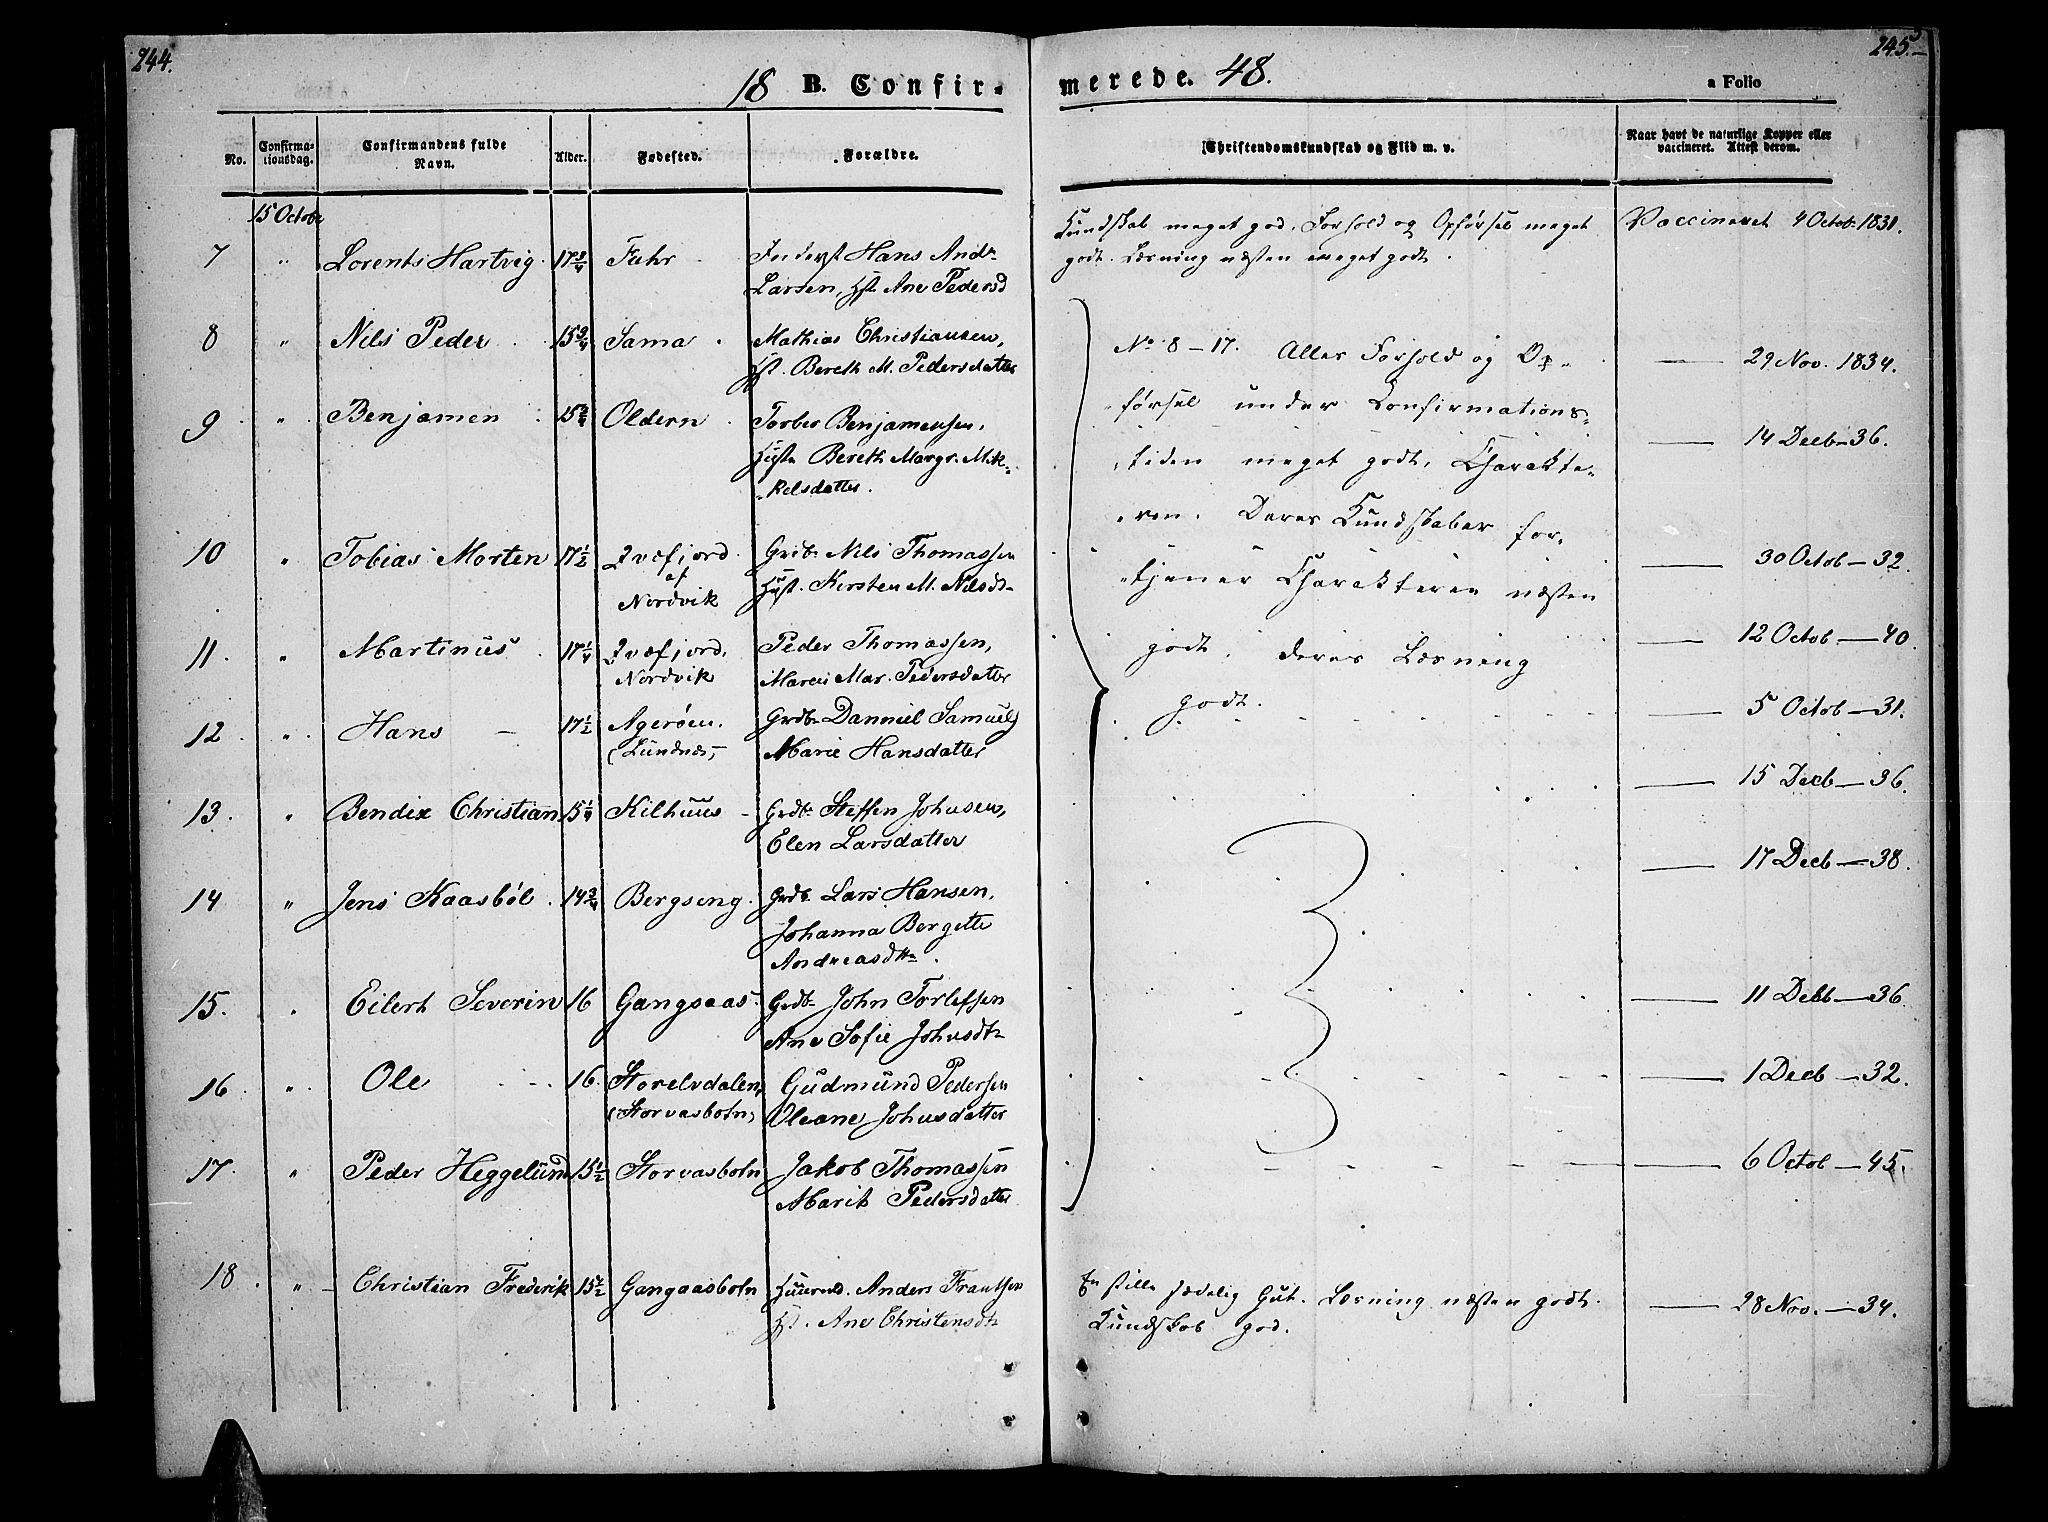 244.
245.
18 B. Confir-
merede. 48.
a Folio
No.
Confirma-
tionsdag.
Confirmandens fulde
Navn.
Alder.
Fødested.
Forældre.
Christendomskundskab og Flid m. v.
Naar havt de naturlige Kopper eller
vaccineret. Attest derom.
15 Octobr
7 " Lorents Hartvig 17 3/4 Fuhr Inderst Hans Andr
Larsen, Hst. Ane Pedersd
Kundskab meget god, Forhold og Opførsel meget
godt. Læsning næsten meget godt.
Vaccineret 4 Octob. 1831.
8 " Nils Peder 15 3/4 Sama Mathias Christiansen,
Hst. Bereth M. Pedersdatter
— 29 Nov. 1834.
9 " Benjamen 15 3/4 Oldern Torber Benjamensen,
Hustr Bereth Margr. Mik-
kelsdatter.
— 14 Decb — 36.
10 " Tobias Morten 17 1/2 Qvæfjord
af
Nordvik
Grdbr Nils Thomassen
Hust. Kirsten M. Nilsdt
— 30 Octob — 32.
11. " Martinus 17 1/4 Qvæfjord,
Nordvik
Peder Thomassen,
Maren Mar. Pedersdatter
— 12 Octob — 40.
12 " Hans — 17 1/2 Agerøen.
(Lundnes,
Grdbr Danniel Samuels
Marie Hansdatter
— 5 Octob — 31.
13. " Bendix Christian 15 1/4 Kilhuus Grdbr Steffen Johnsen,
Elen Larsdatter
— 15 Decb — 36.
14 " Jens Kaasbøl 14 3/4 Bergseng Grdb. Lars Hansen,
Johanna Bergette
Andreasdttr.
— 17 Decb — 38.
15. " Eilert Severin 16 Gangsaas Grdbr John Torlefsen
Ane Sofie Johnsdtr
— 11 Decb — 36.
16 " Ole 16. Storelvdalen,
(Storvasbotn,
Gudmund Pedersen
Oleane Johnsdatter
— 1 Decb — 32.
17. " Peder Heggelund 15 1/2 Storvasbotn Jakob Thomassen
Marit Pedersdatter
— 6 Octob — 45.
No 8 – 17. Alles Forhold og Op-
førsel under Confirmations-
tiden meget godt, Charakte-
ren. Deres Kundskaber for-
tjener Charakteren næsten
godt, deres Læsning
godt.
18. " Christian Frederik 15 1/2 Gangaasbotn Huusmd. Anders Frantsen
Hst. Ane Christensdtr
En stille sædelig Gut. Læsning næsten godt.
Kundskab god.
— 28 Nov. — 34.